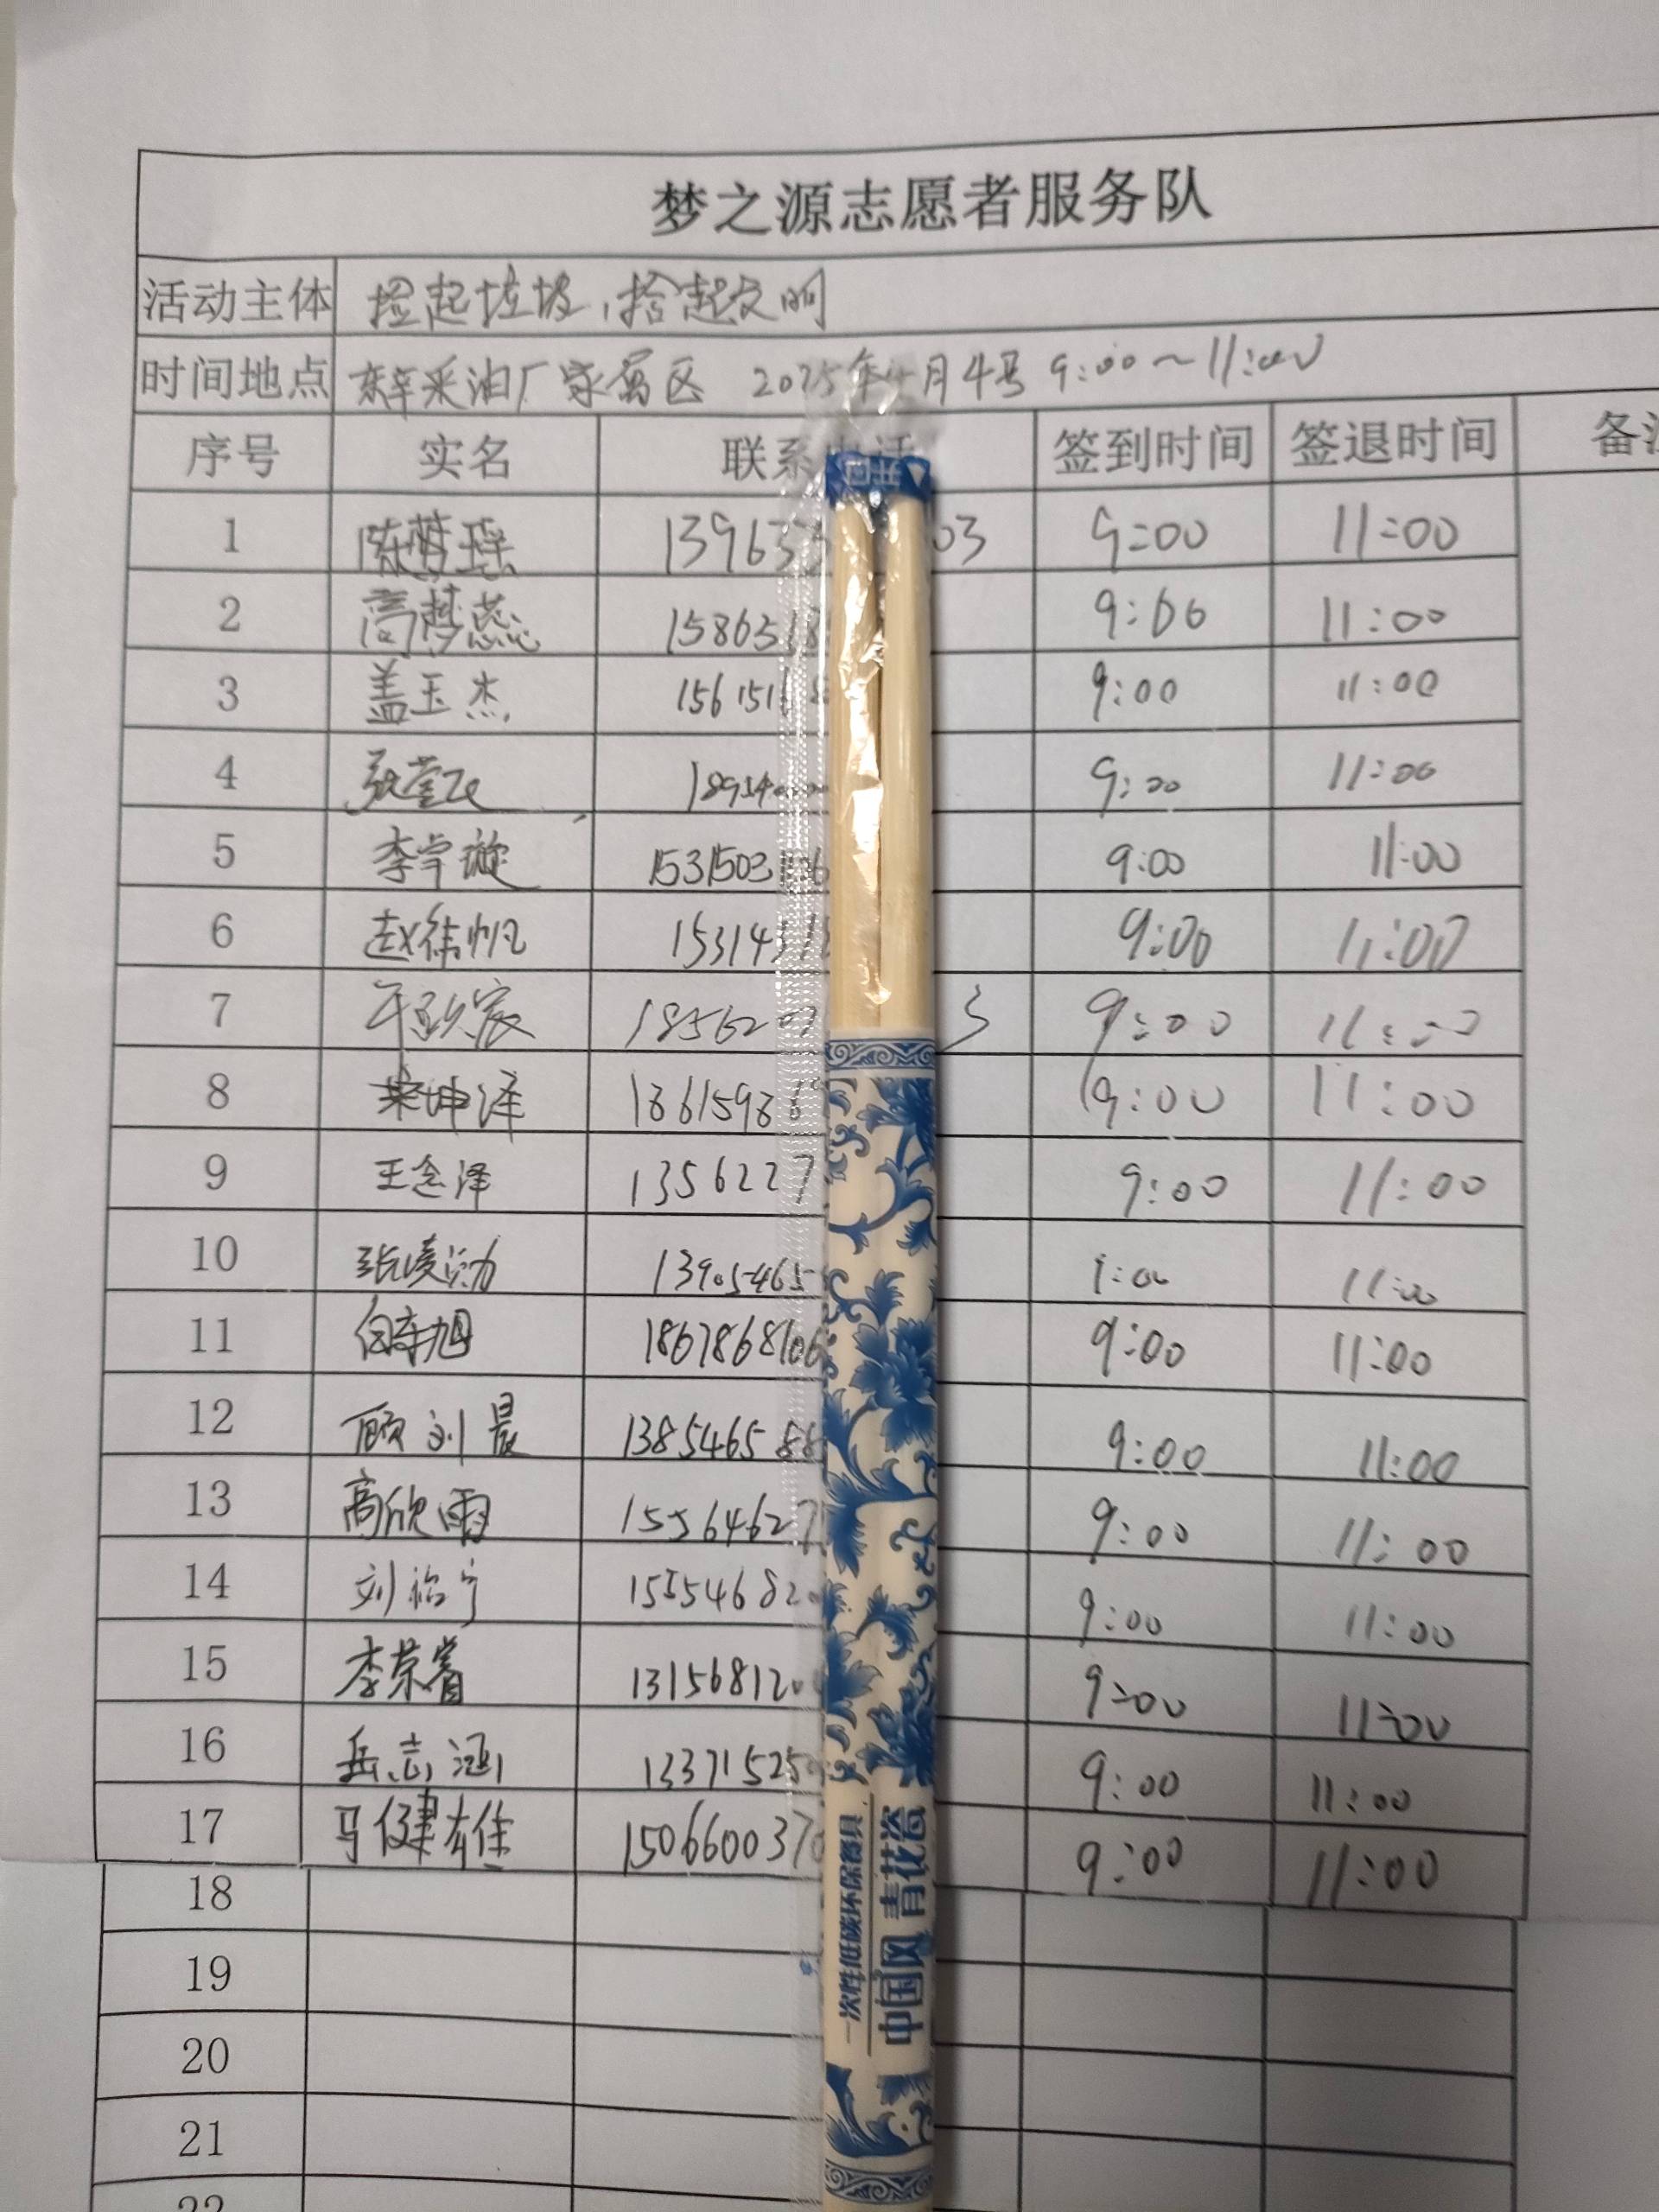 梦之源志愿者服务队
活动主体 捡起垃圾，拾起文明
时间地点 东辛采油厂家属区 2025年4月4号 9:00～11:00
序号 实名 联系电话 签到时间 签退时间 备注
1 陈梦瑶 13963 03 9:00 11:00
2 高梦蕊 158631 9:00 11:00
3 盖玉杰 156151 9:00 11:00
4 张萱 18954 9:00 11:00
5 李宇璇 1531503 9:00 11:00
6 赵徐帆 15314 9:00 11:00
7 185620 3 9:00 11:00
8 荣坤泽 18615988 9:00 11:00
9 王念泽 1356227 9:00 11:00
10 张凌 13905465 9:00 11:00
11 1867868106 9:00 11:00
12 顾刘晨 1385465 88 9:00 11:00
13 高欣雨 15564627 9:00 11:00
14 刘裕宁 155546820 9:00 11:00
15 李荣睿 131568120 9:00 11:00
16 岳志涵 13371525 9:00 11:00
17 马健雄 150660037 9:00 11:00
18
19
20
21
22
开启
一次性低碳环保餐具
中国风 青花瓷